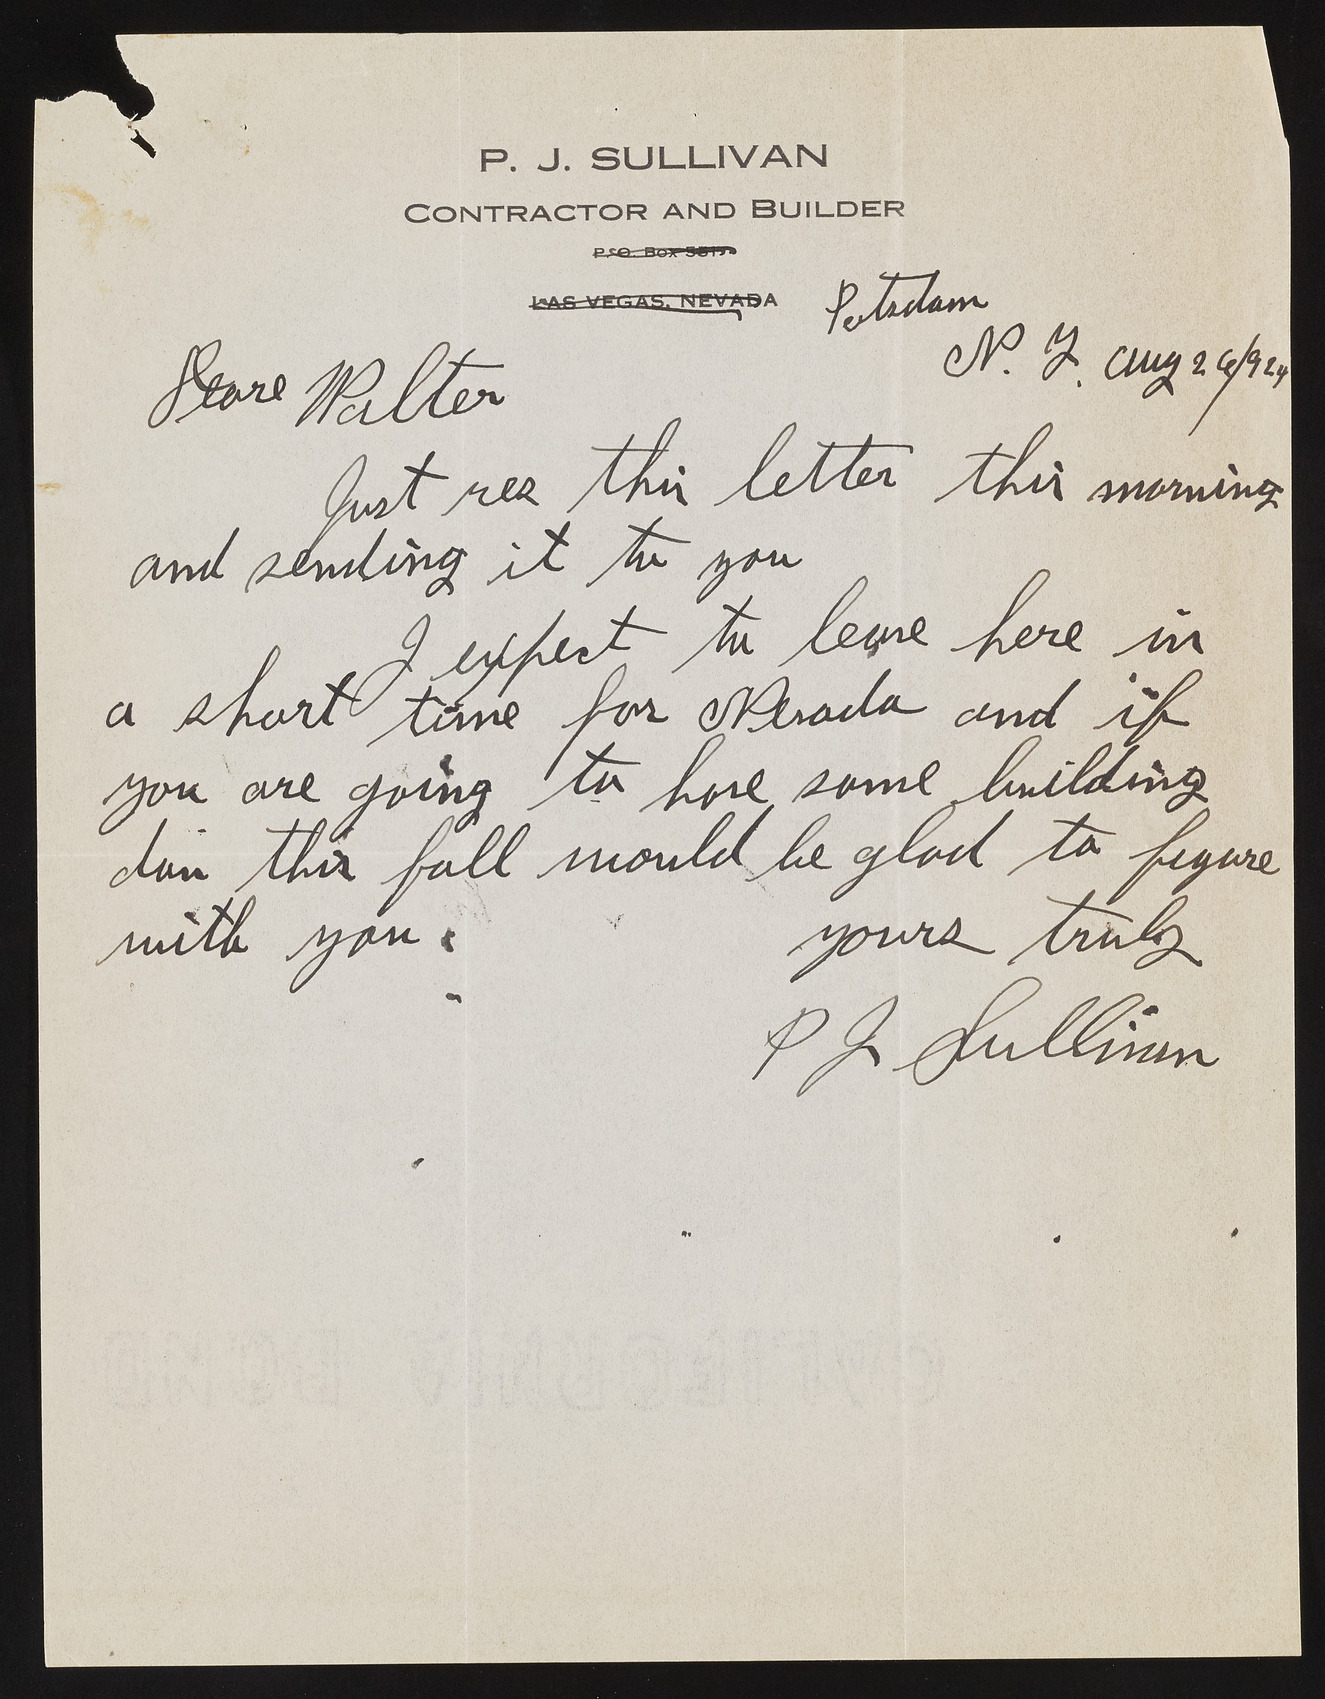 P. J. SULLIVAN
CONTRACTOR AND BUILDER
P. O. BOX
LAS VEGAS, NEVADA
Potsdam
N. Y. Aug 26/924
Deare Walter
Just rec this letter this morning
and sending it to you
I expect to leave here in
a short time for Nevada and if
you are going to have some building
don this fall would be glad to figure
with you.
yours truly
P J Sullivan